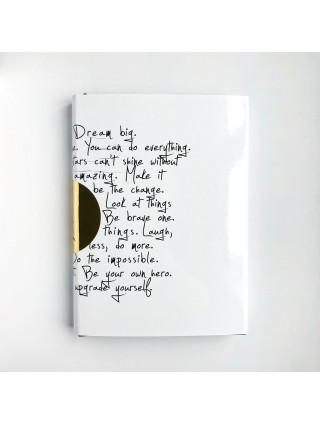 Dream big.
e. You can do everything.
tars can't shine without
amazing. Make it
be the change.
Look at things
Be brave one.
things. Laugh,
less, do more.
Do the impossible.
Be your own hero.
upgrade yourself